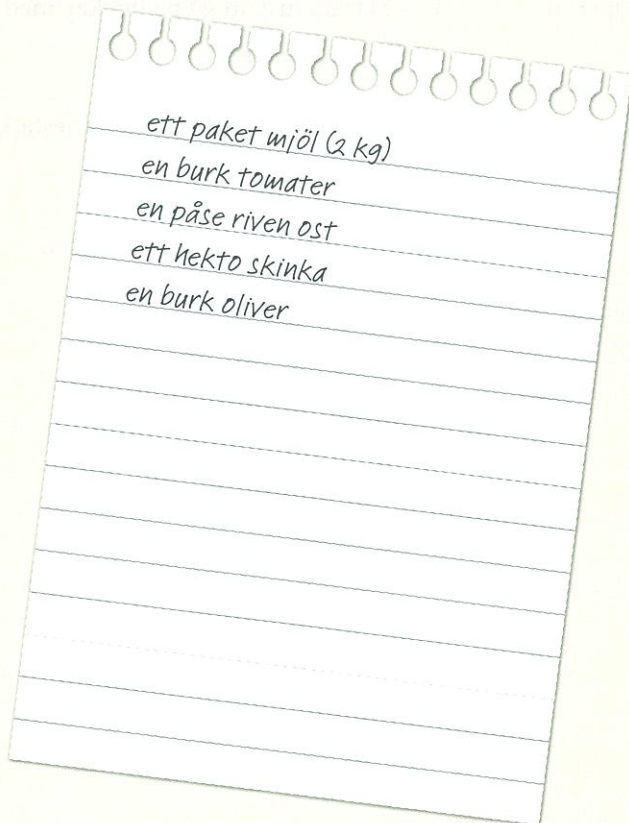 ett paket mjöl (2 kg)
en burk tomater
en påse riven ost
ett hekto skinka
en burk oliver